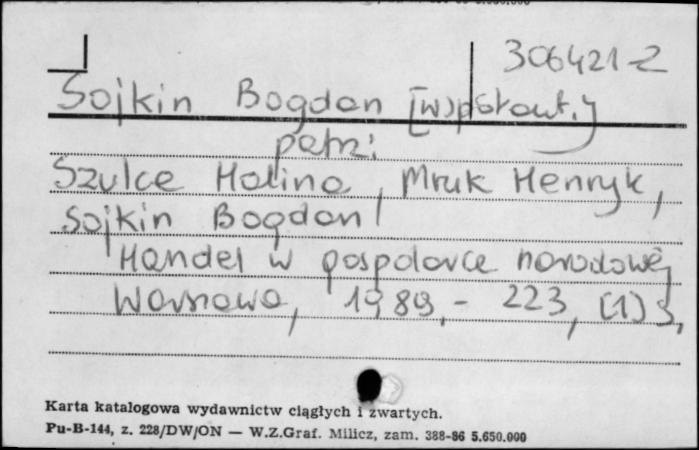 306421-2
Sojkin Bogdan [w)spółaut.]
patrz:
Szulce Halina, Mruk Henryk,
Sojkin Bogdan
Handel w gospodarce narodowej
Warszawa, 1989,- 223, (1) s,
Karta katalogowa wydawnictw ciągłych i zwartych.
Pu-B-144, z. 228/DW/ON — W.Z.Graf. Milicz, zam. 388-86 5.650.000